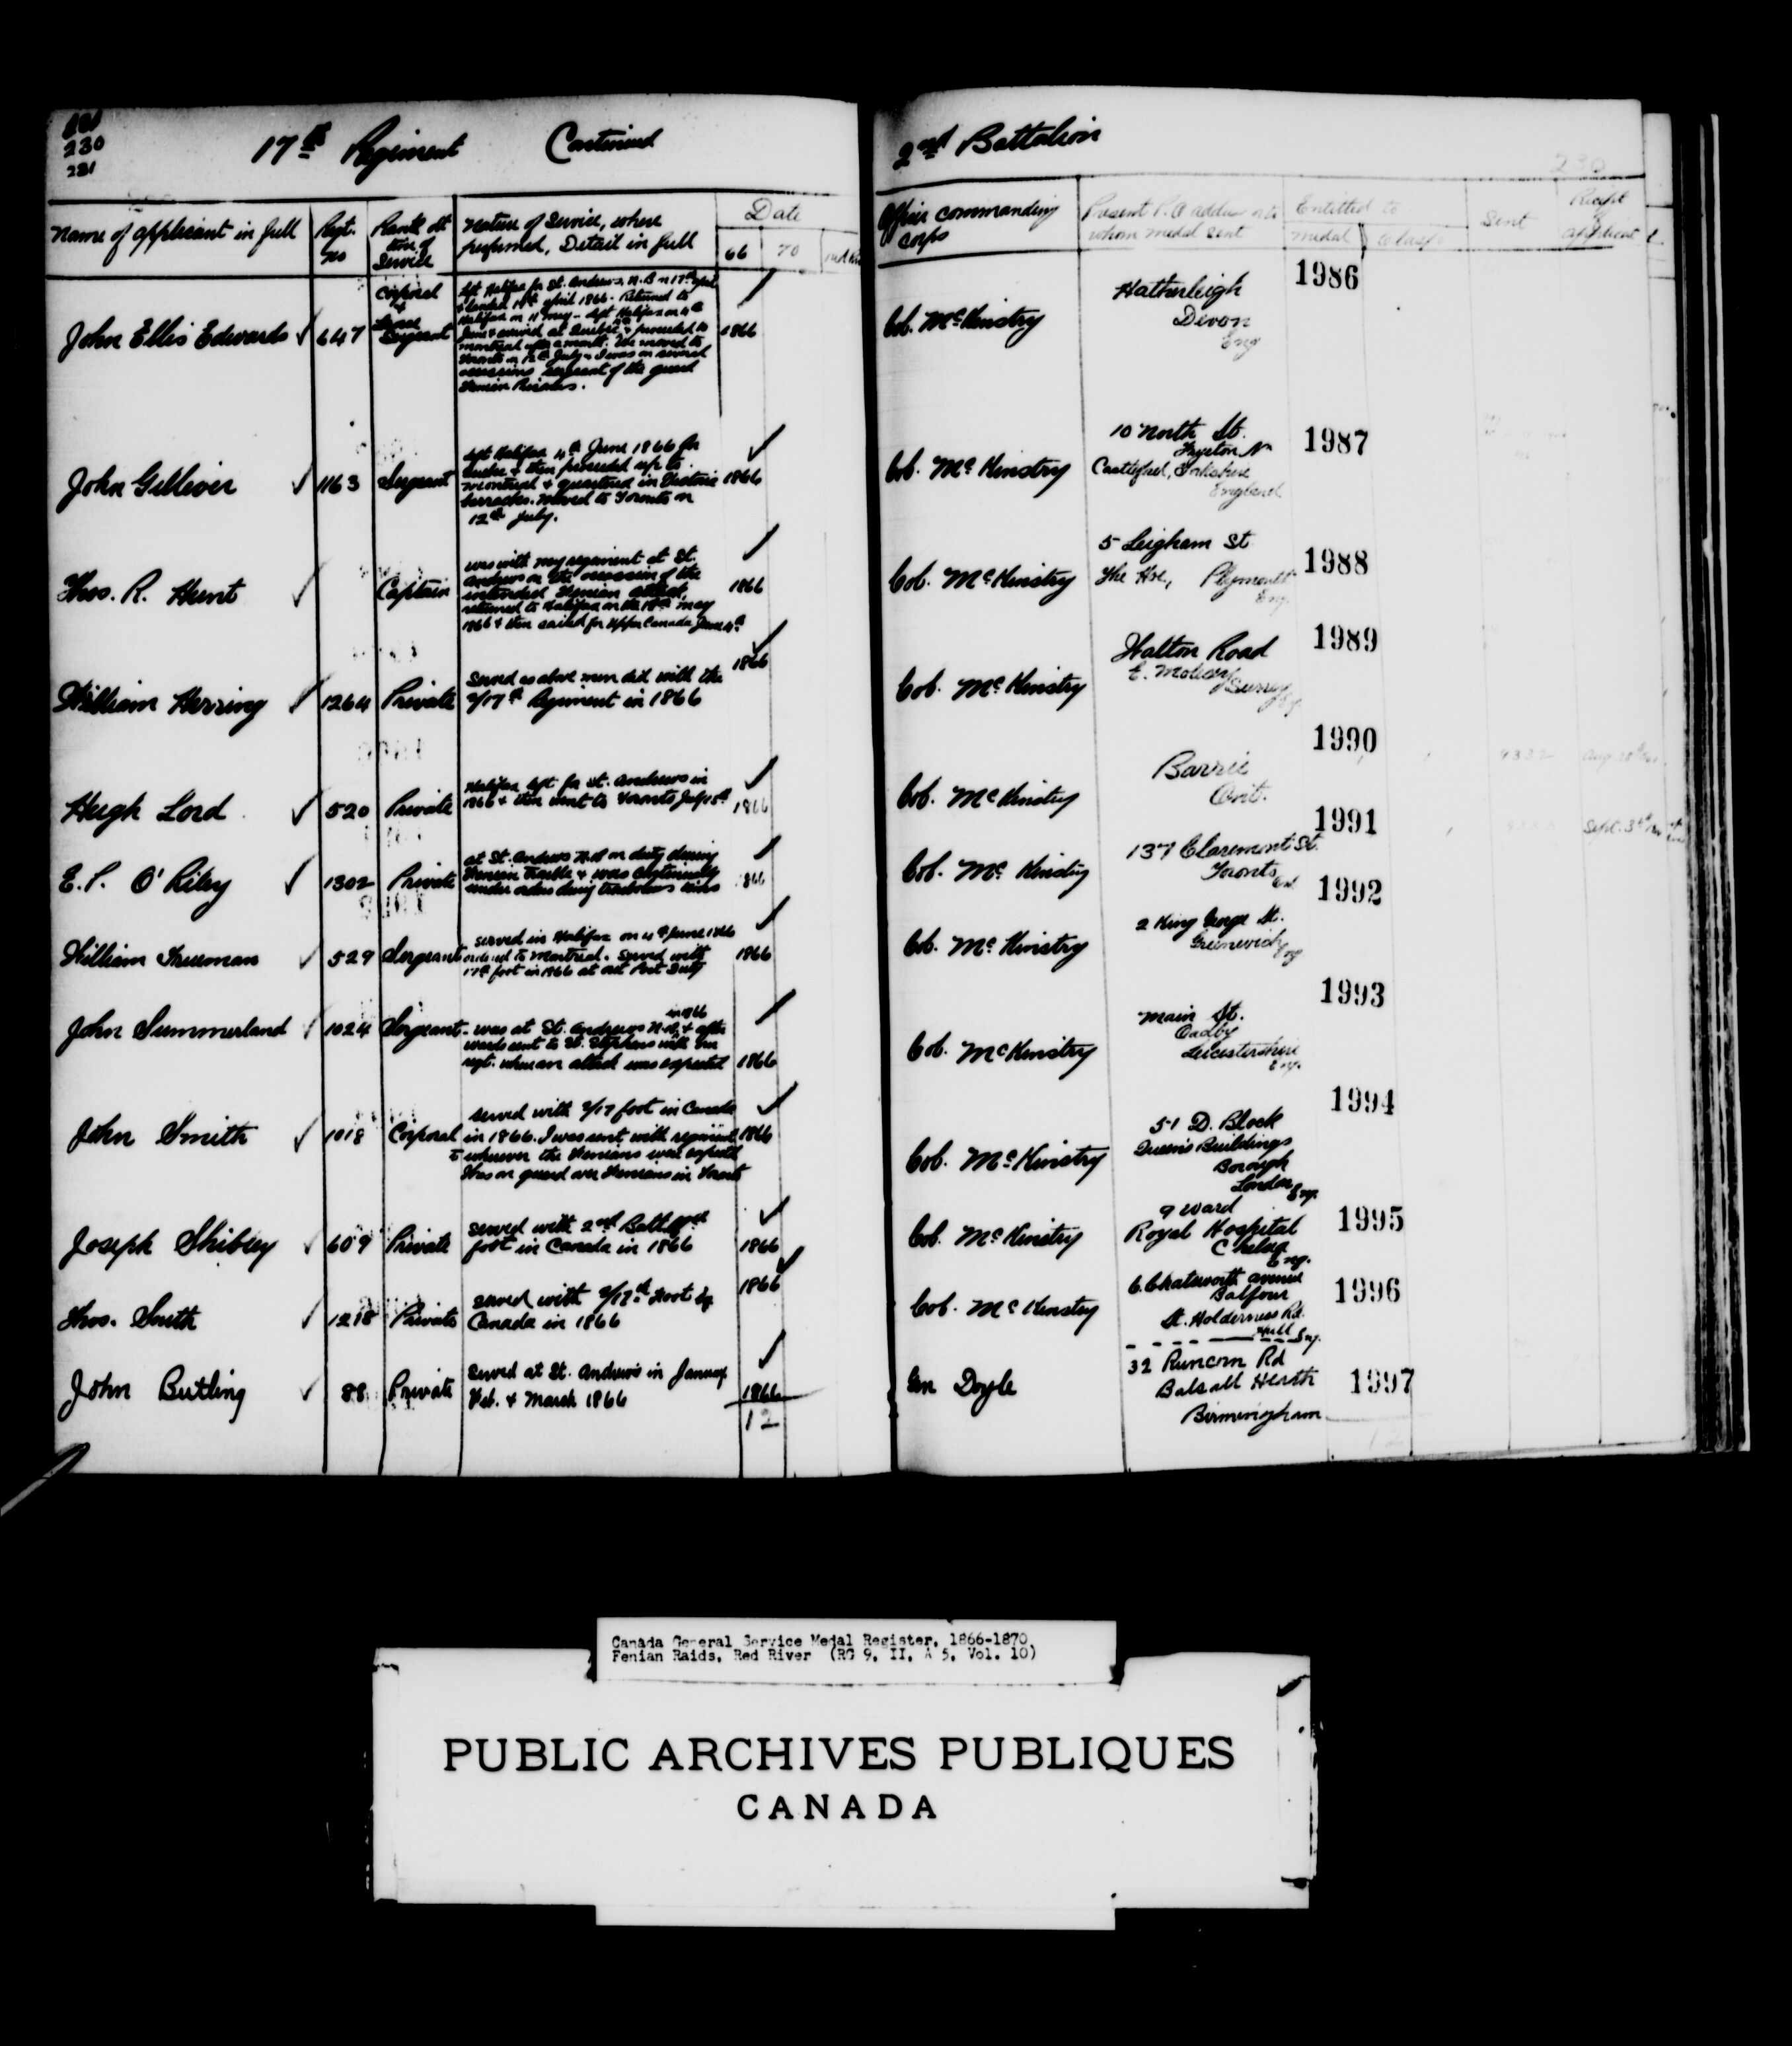 230
231
17th Regiment Continued
Name of applicant in full
Regt. no
Rank at time of Service
Nature of Service, where performed, Detail in full
Date
66 70
John Ellis Edwards 647
Corporal & Lance Sergeant
Left Halifax for St. Andrews, N.B. on 17th April
& landed 19th April 1866. Returned to
Halifax on 11 May - Left Halifax on 4th
June & arrived at Quebec & proceeded to
Montreal after a month. We moved to
Toronto on 12th July. I was on several
occasions sergeant of the guard
Fenian Prisoners.
1866
John Gelliver 1163 Sergeant
Left Halifax 4th June 1866 for
Quebec & then proceeded up to
Montreal & quartered in Victoria
barracks. Moved to Toronto on
12th July.
1866
Thos. R. Hunt Captain
was with my regiment at St.
Andrews on the occasion of the
intended Fenian attack,
returned to Halifax on the 10th May
1866 & then sailed for Upper Canada June 4th
1866
William Herring 1264 Private
Served as above men did with the
2/17th Regiment in 1866
1866
Hugh Lord 520 Private
Halifax left for St. Andrews in
1866 & then went to Toronto July 15th
1866
E. P. O'Riley 1302 Private
at St. Andrews N.B. on duty during
Fenian trouble & was continually
under orders during troublous times
1866
William Freeman 529 Sergeant
served in Halifax on 4th June 1866
ordered to Montreal. Served with
17th foot in 1866 at out Post Duty
1866
John Summerland 1024 Sergeant
in 1866
was at St. Andrews N.B. & after
wards sent to St. Stephens with our
regt. when an attack was expected
1866
John Smith 1018 Corporal
served with 2/17 foot in Canada
in 1866. I was sent with regiment
to wherever the Fenians were expected
Was on guard over Fenians in Toronto
1866
Joseph Shibley 609 Private
served with 2nd Batt
foot in Canada in 1866
1866
Thos. Smith 1218 Private
served with 2/17th Foot in
Canada in 1866
1866
John Butling 88 Private
Served at St. Andrews in January
Feb. & March 1866
1866
12
2nd Battalion
230
Officer commanding corps
Present P.O address or to whom medal sent
Entitled to
medal clasp
Sent
Receipt of applicant
Col. McKinstry
Hatherleigh
Devon
Eng
1986
Col. McKinstry
10 North St.
Castleford, Yorkshire
England
1987
Col. McKinstry
5 Leigham St
The Hoe, Plymouth
Eng.
1988
Col. McKinstry
Walton Road
E. Molesey
Surrey
1989
Col. McKinstry
Barrie
Ont.
1990
9332
Col. McKinstry
137 Claremont St.
Toronto
1991
Sept. 3rd
Col. McKinstry
2 King George St.
Greenwich
Eng
1992
Col. McKinstry
Main St.
Oadby
Leicestershire
Eng.
1993
Col. McKinstry
51 D. Block
Queen's Buildings
Borough
London Eng.
1994
Col. McKinstry
9 Ward
Royal Hospital
Chelsea
Eng.
1995
Col. McKinstry
6 Chatsworth avenue
Balfour
St. Holderness Rd.
Hull Eng.
1996
Gen Doyle
32 Runcorn Rd
Balsall Heath
Birmingham
1997
12
Canada General Service Medal Register, 1866-1870,
Fenian Raids, Red River (RG 9, II, A 5, Vol. 10)
PUBLIC ARCHIVES PUBLIQUES
CANADA